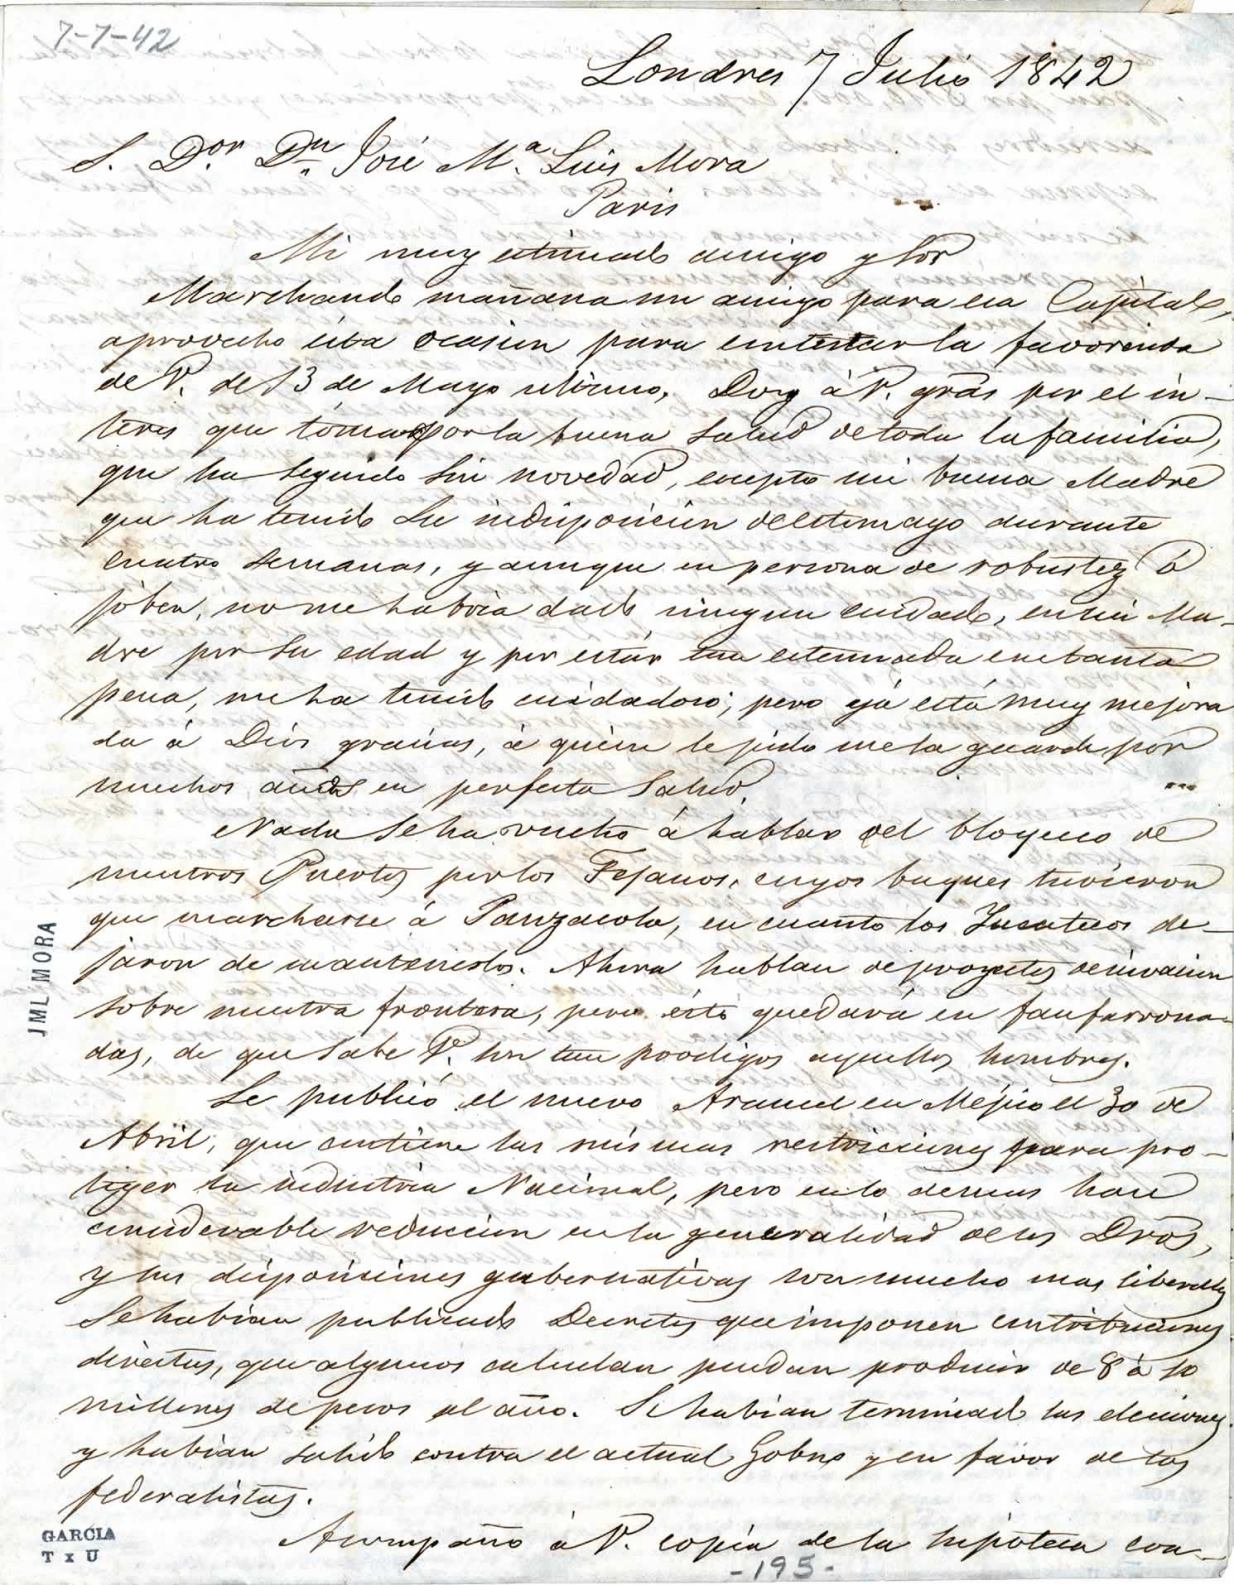 7-7-42
Londres 7 Julio 1842
S. D.or D.n José M.a Luis Mora
Paris
Mi muy estimado amigo y Sor
Marchando mañana un amigo para esa Capital,
aprovecho esta ocasion para contestar la favorecida
de V. de 13 de Mayo ultimo. Doy á V. grãs por el in-
teres que toma por la buena salud de toda la familia,
que ha seguido sin novedad, excepto mi buena Madre
que ha tenido su indisposicion de estomago durante
cuatro semanas, y aunque en persona de robustez ó
jóben, no me habria dado ningun cuidado, en mi Ma-
dre por su edad y por estár tan estenuada en estanta
pena, me ha tenido cuidadoso; pero yá está muy mejora
da á Diós gracias, á quién le pido me la guarde por
muchos años en perfecta Salud.
Nada se ha vuelto á hablar del bloqueo de
nuestros Puertos por los Tejanos, cuyos buques tuvieron
que marcharse á Panzacola, en cuanto los Yucatecos de-
jaron de mantenerlos. Ahora hablan de proyectos de invasion
sobre nuestra frontera, pero ésto quedará en fanfarrona-
das, de que sabe V. son tan prodigos aquellos hombres.
Se publicó el nuevo Arancel en Méjico el 30 de
Abril, que contiene las mismas restricciones para pro-
teger la industria Nacional, pero en lo demas hace
considerable reduccion en la generalidad de los Dros,
y sus disposiciones gubernativas son mucho mas liberales
Se habian publicado Decretos que imponen contribuciones
directas, que algunos calculan puedan producir de 8 á 10
millones de pesos al año. Se habian terminado las elecciones
y habian salido contra el actual Gobno y en favor de los
federalistas.
Acompaño á V. copia de la hipoteca con-
JML MORA
GARCIA
T x U
-195-